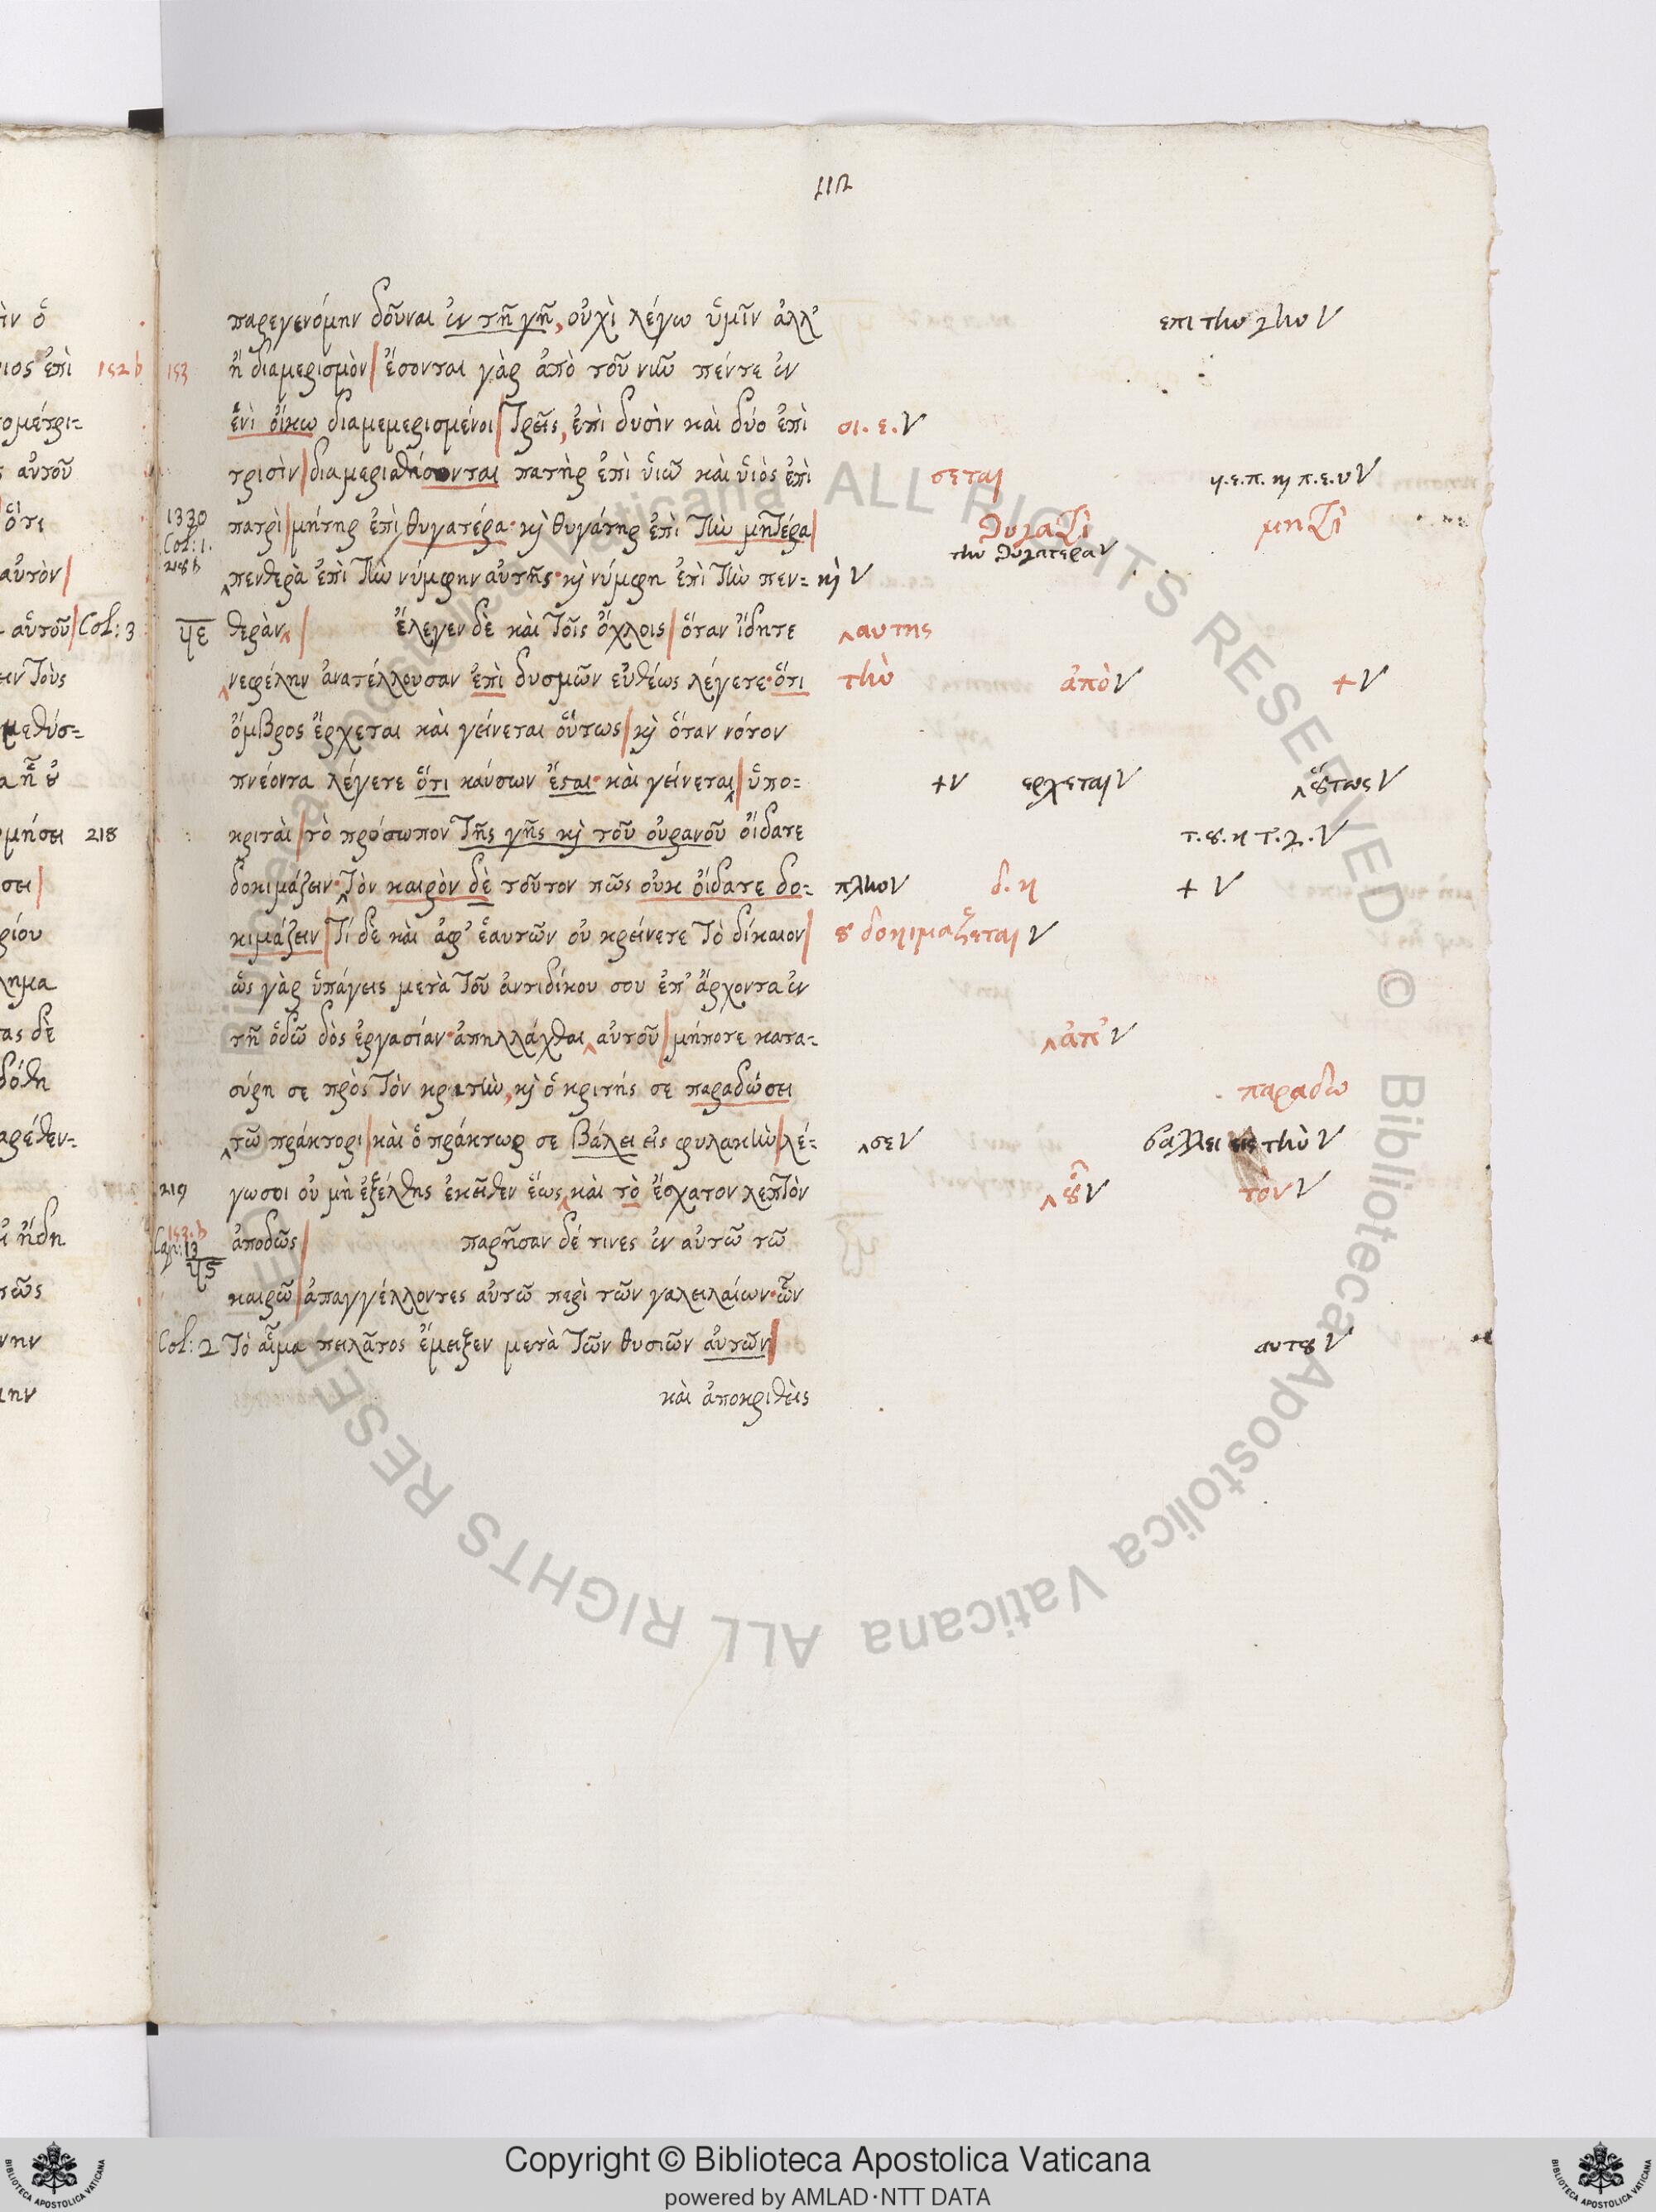 112
παρεγενόμην δοῦναι ἐν τῆ γῆ, οὐχὶ λέγω ὑμῖν ἀλλ' επι την γην V
153 ἢ διαμερισμὸν | ἔσονται γὰρ ἀπὸ τοῦ νῦν πέντε ἐν
ἑνὶ οἴκω διαμεμερισμένοι | Τρεῖς, ἐπὶ δυσὶν καὶ δύο ἐπὶ οι. ε. V
τρισὶν | διαμερισθήσονται πατὴρ ἐπὶ υἱῶ καὶ υἱὸς ἐπὶ σεται υ. ε. π. κὶ π. ε. υ V
1330 Col: 1. πατρὶ | μήτηρ ἐπὶ θυγατέρα· κὶ θυγάτηρ ἐπὶ τὴν μητέρα | θυγατρὶ μητρὶ
την θυγατερα V
218 b ‸πενθερὰ ἐπὶ τὴν νύμφην αὐτῆς· κὶ νύμφη ἐπὶ τὴν πεν= κὶ V
ϥε θερὰν‸ | ἔλεγεν δὲ καὶ τοῖς ὄχλοις | ὅταν ἴδητε ‸αυτης
‸νεφέλην ἀνατέλλουσαν ἐπὶ δυσμῶν εὐθέως λέγετε· ὅτι τὴν ἀπὸ V + V
ὄμβρος ἔρχεται καὶ γείνεται οὕτως | κὶ ὅταν νότον
πνέοντα λέγετε ὅτι καύσων ἔσται· καὶ γείνεται‸ | ὑπο= + V ερχεται V ‸οὕτως V
κριταὶ | τὸ πρόσωπον τῆς γῆς κὶ τοῦ οὐρανοῦ οἴδατε τ. ου. κ τ. γ. V
δοκιμάζειν· ‸τὸν καιρὸν δὲ τοῦτον πῶς οὐκ οἴδατε δο= πλην V δ. κ + V
κιμάζειν | Τί δὲ καὶ ἀφ' ἑαυτῶν οὐ κρείνετε τὸ δίκαιον | ου δοκιμαζεται V
ὡς γὰρ ὑπάγεις μετὰ τοῦ ἀντιδίκου σου ἐπ' ἄρχοντα ἐν
τῆ ὁδῶ δὸς ἐργασίαν· ἀπηλλάχθαι ‸αὐτοῦ | μήποτε κατα= ‸ἀπ' V
σύρη σε πρὸς τὸν κριτὴν, κὶ ὁ κριτής σε παραδώσει παραδω
‸τῶ πράκτορι | καὶ ὁ πράκτωρ σε βάλει εἰς φυλακὴν | λέ= ‸σε V βαλλει εις τὴν V
219 γωσοι οὐ μὴ ἐξέλθης ἐκεῖθεν ἕως‸ καὶ τὸ ἔσχατον λεπτὸν ‸οὗ V τὸν V
153. b Cap: 13 ἀποδῶς | παρῆσαν δέ τινες ἐν αὐτῶ τῶ
ϥς καιρῶ | ἀπαγγέλλοντες αὐτῶ περὶ τῶν γαλειλαίων· ὧν
Col: 2 Τὸ αἷμα πειλᾶτος ἔμειξεν μετὰ τῶν θυσιῶν αὐτῶν | αυτου V
καὶ ἀποκριθεὶς
Copyright © Biblioteca Apostolica Vaticana
powered by AMLAD·NTT DATA